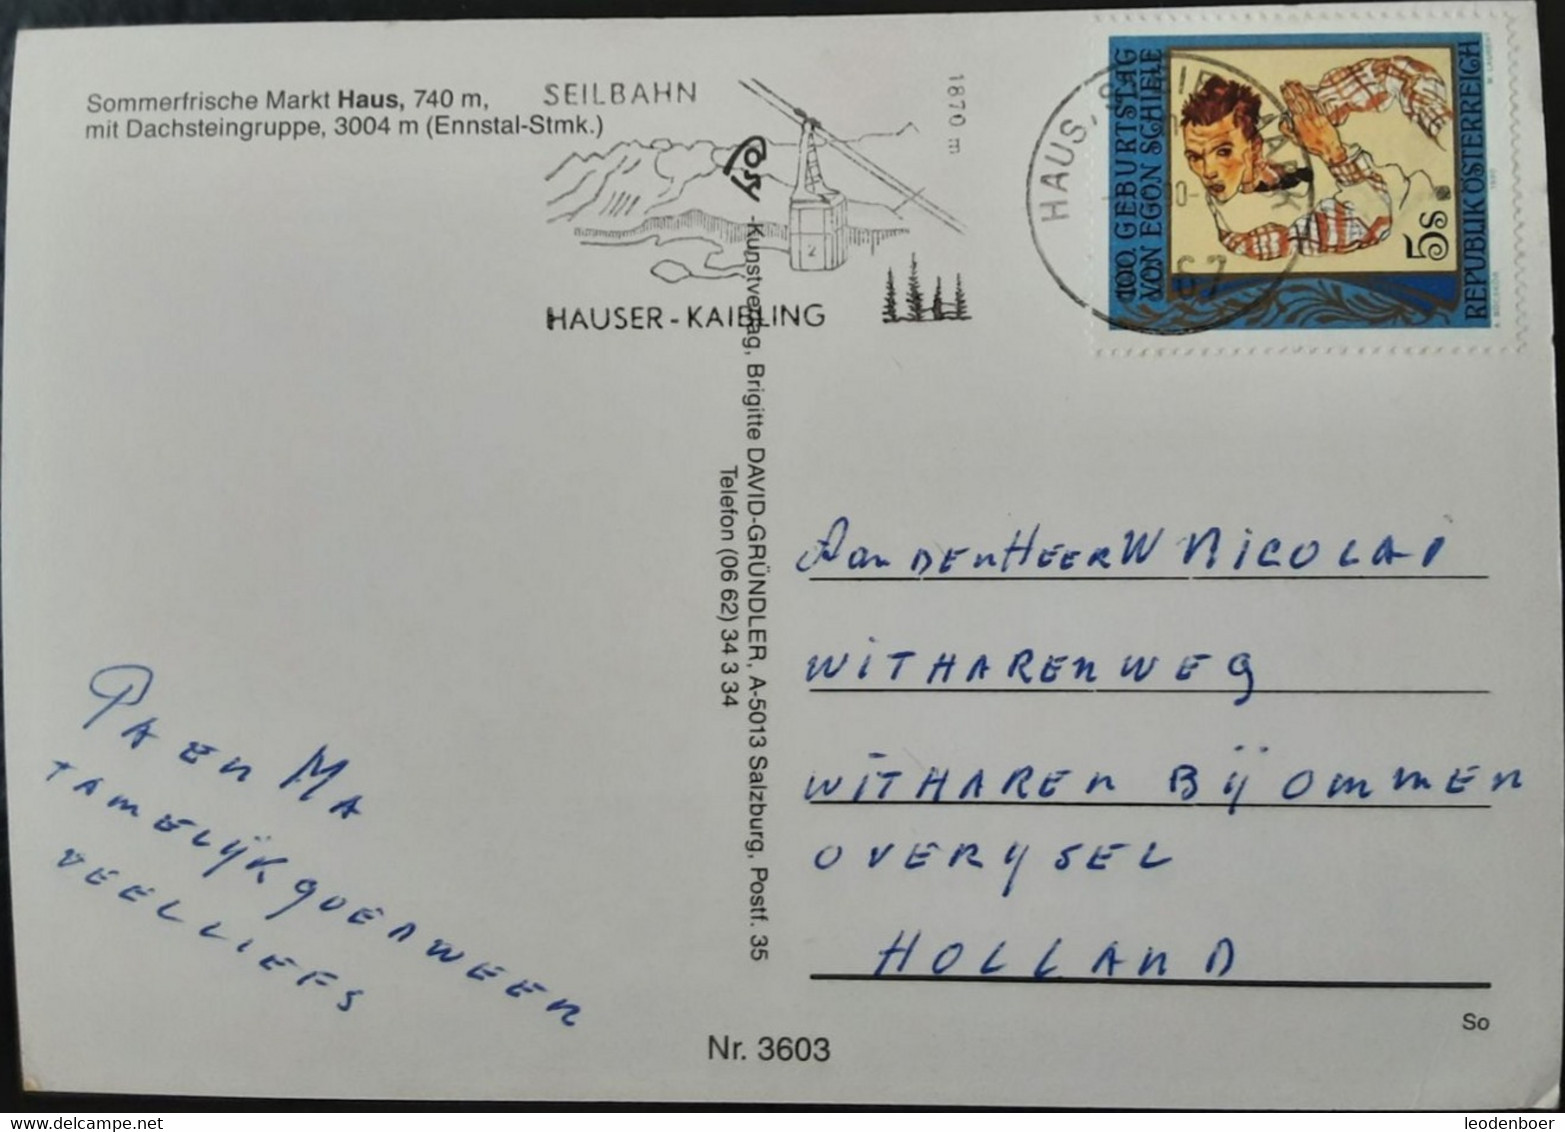 Sommerfrische Markt Haus, 740 m,
mit Dachsteingruppe, 3004 m (Ennstal-Stmk.)
SEILBAHN
1870 m
2
HAUSER-KAIBLING
Cosy-Kunstverlag, Brigitte DAVID-GRÜNDLER, A-5013 Salzburg, Postf. 35
Telefon (06 62) 34 3 34
HAUS,
100. GEBURTSTAG
VON EGON SCHIELE
5s
REPUBLIK ÖSTERREICH
1990
PA EN MA
TAMELIJK GOED WEER
VEEL LIEFS
Aan DEN HEER W NICOLAI
WITHARENWEG
WITHAREN BIJ OMMEN
OVERYSEL
HOLLAND
So
Nr. 3603
leodenboer